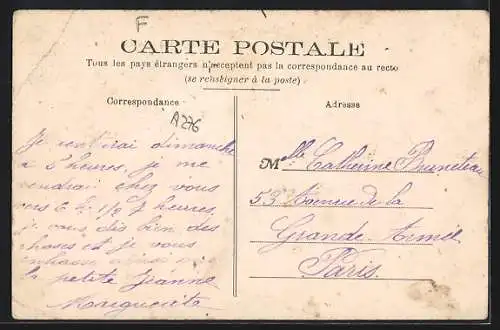 F
CARTE POSTALE
Tous les pays étrangers n'acceptent pas la correspondance au recto
(se renseigner à la poste)
Correspondance
Adresse
A276
Je rentrai dimanche
à 5 heures, je me
rendrai chez vous
vers 6 h 1/2 7 heures,
je vous dis bien des
choses et je vous
embrasse ainsi que
la petite Jeanne
Marguerite
Melle Catherine Bruneteau
53 Avenue de la
Grande Armée
Paris.